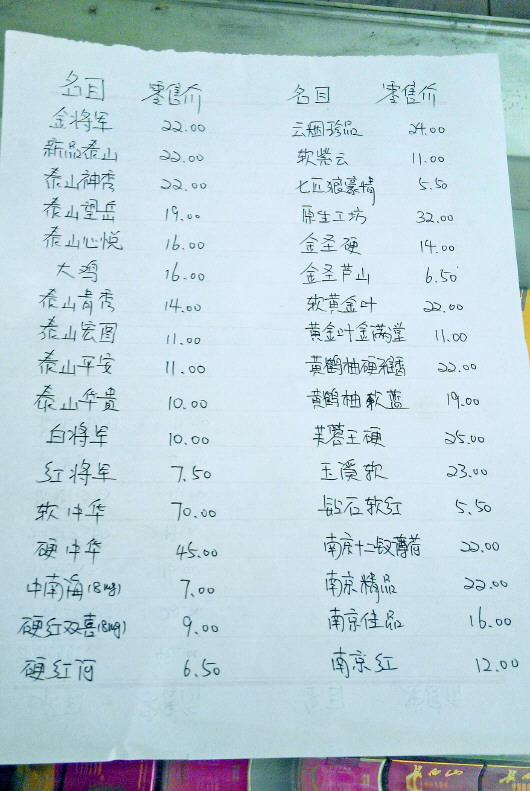 名目 零售价 名目 零售价
金将军 22.00 云烟珍品 24.00
新品泰山 22.00 软紫云 11.00
泰山神秀 22.00 七匹狼豪情 5.50
泰山望岳 19.00 原生工坊 32.00
泰山心悦 16.00 金圣硬 14.00
大鸡 16.00 金圣芦山 6.50
泰山青秀 14.00 软黄金叶 22.00
泰山宏图 11.00 黄金叶金满堂 11.00
泰山平安 11.00 黄鹤柚硬 22.00
泰山华贵 10.00 黄鹤柚软蓝 19.00
白将军 10.00 芙蓉王硬 25.00
红将军 7.50 玉溪软 23.00
软中华 70.00 钻石软红 5.50
硬中华 45.00 南京十二钗薄荷 22.00
中南海(8mg) 7.00 南京精品 22.00
硬红双喜(8mg) 9.00 南京佳品 16.00
硬红河 6.50 南京红 12.00
长白山